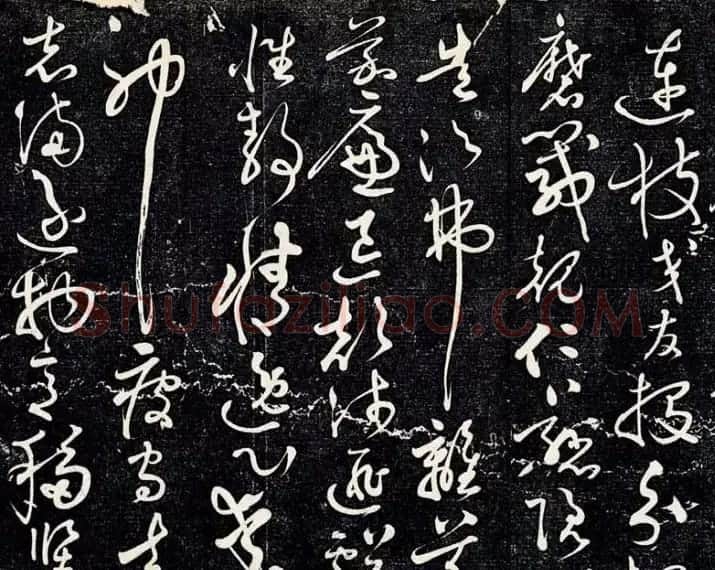 連枝交友投分切
磨箴規仁慈隱
造次弗離節
義廉退顛沛匪虧
性靜情逸心動
神疲守真
志滿逐物意移堅
Shufaziliao.COM